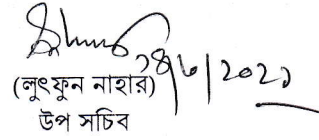 ২৪/৬/২০২১
(লুৎফুন নাহার)
উপ সচিব